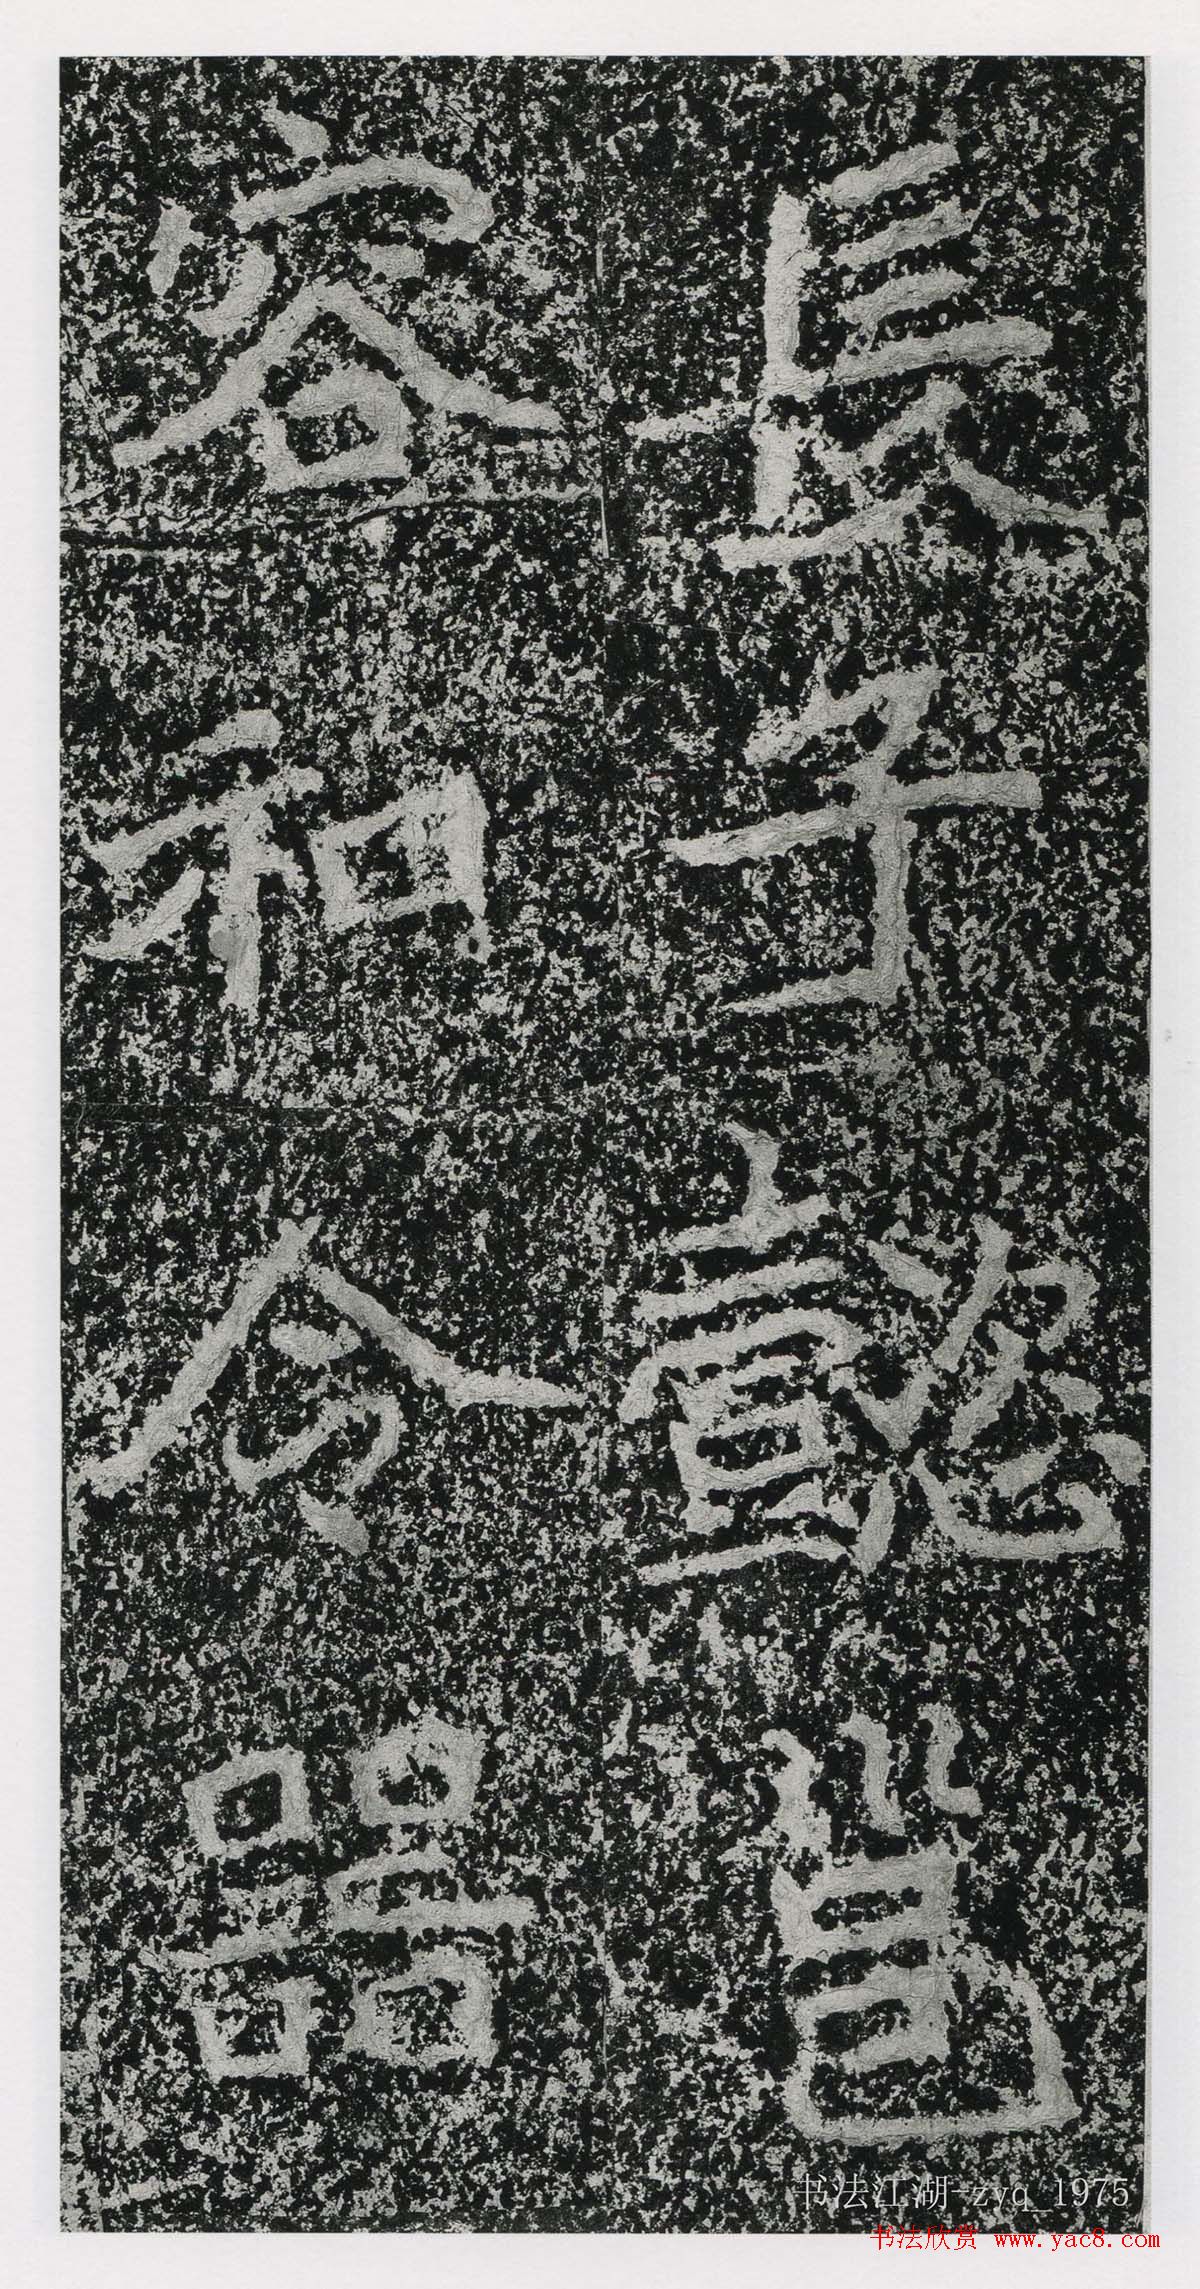 長子懿邕
容和令器
书法江湖-zyq_1975
书法欣赏 www.yac8.com